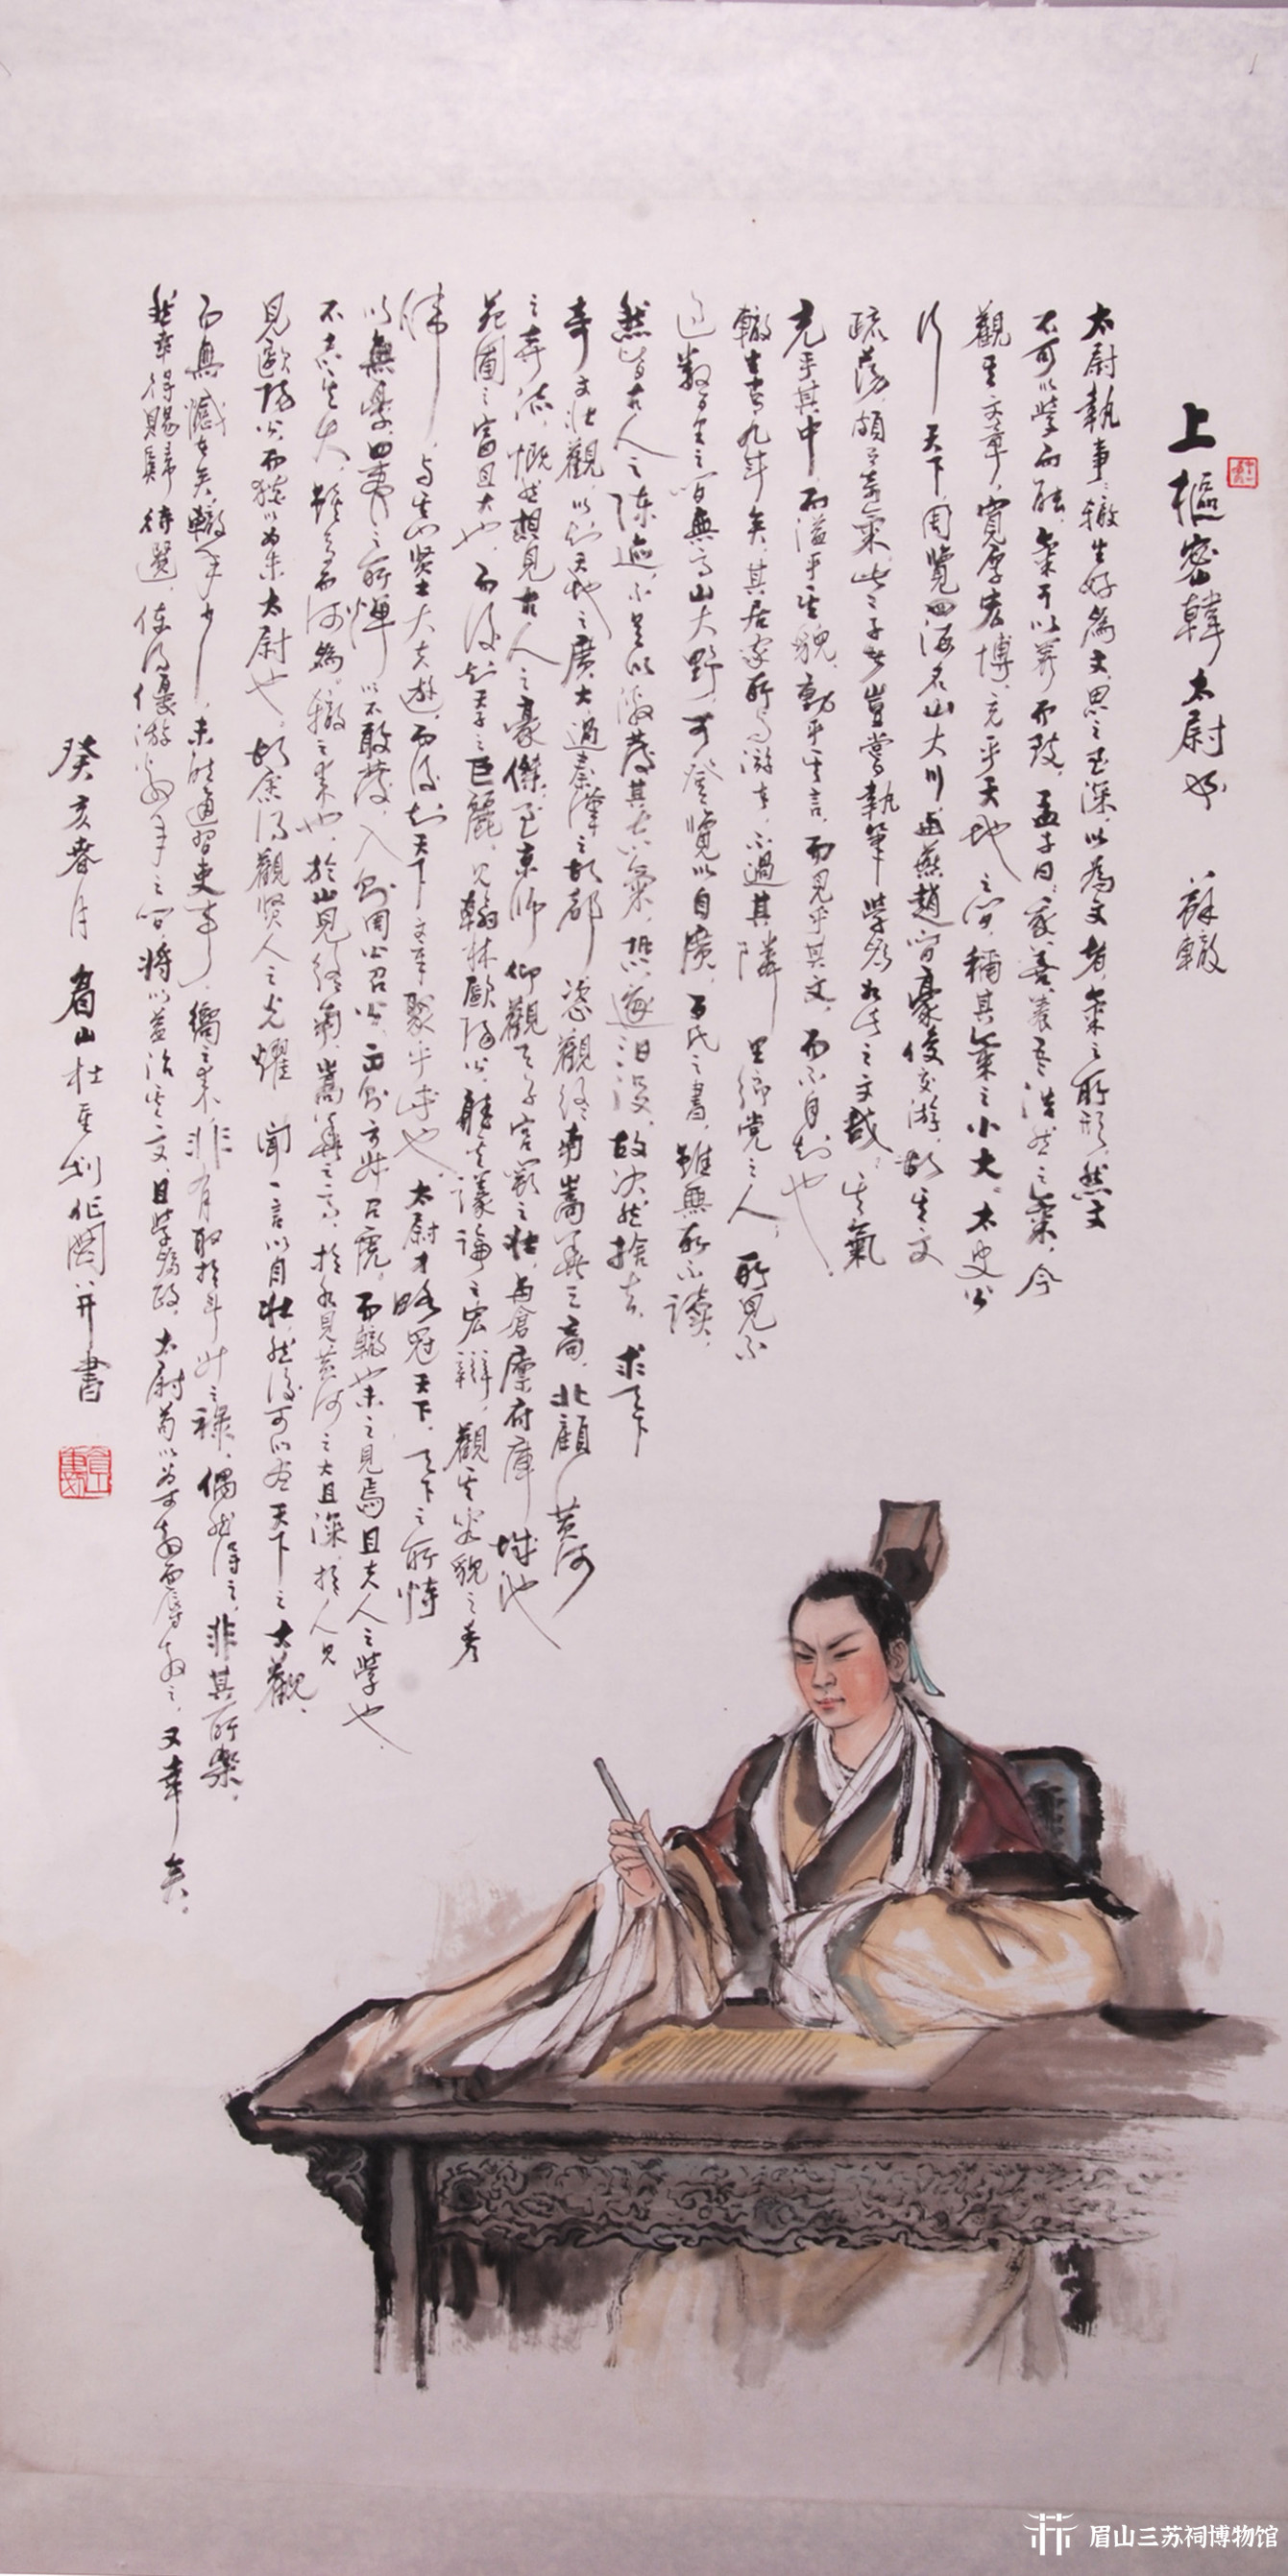 上樞密韓太尉書　蘇轍
太尉執事：轍生好為文，思之至深，以為文者，氣之所形，然文
不可以學而能，氣可以養而致。孟子曰：我善養吾浩然之氣。今
觀其文章，寬厚宏博，充乎天地之間，稱其氣之小大。太史公
行天下，周覽四海名山大川，與燕趙間豪俊交游，故其文
疏蕩，頗有奇氣。此二子者，豈嘗執筆學為如此之文哉？其氣
充乎其中，而溢乎其貌，動乎其言，而見乎其文，而不自知也。
轍生十有九年矣。其居家所與游者，不過其鄰里鄉党之人，所見不
過數百里之間，無高山大野，可登覽以自廣，百氏之書，雖無所不讀，
然皆古人之陳迹，不足以激發其志氣。恐遂汩沒，故決然捨去，求天下
奇文壯觀，以知天地之廣大。過秦漢之故都，恣觀終南嵩華之高，北顧黃河
之奔流，慨然想見古人之豪傑。至京師，仰觀天子宮闕之壯，與倉廩府庫城池
苑囿之富且大也，而後知天子之巨麗。見翰林歐陽公，聽其議論之宏辯，觀其容貌之秀
偉，與其門人賢士大夫遊，而後知天下文章聚乎此也。太尉才略冠天下，天下之所恃
以無憂，四夷之所憚以不敢發，入則周公召公，出則方叔召虎，而轍也未之見焉。且夫人之學也，
不志其大，雖多而何為。轍之來也，於山見終南嵩華之高，於水見黃河之大且深，於人見
見歐陽公，而猶以為未太尉也。故愿得觀賢人之光耀，聞一言以自壯，然後可以盡天下之大觀，
而無憾者矣。轍年少，未能通習吏事。嚮之來，非有取於斗升之祿，偶然得之，非其所樂。
然幸得賜歸待選，使得優游數年之間，將以益治其文，且學為政。太尉苟以為可教而辱教之，又幸矣。
癸亥春月　眉山杜重划作圖并書
眉山三苏祠博物馆